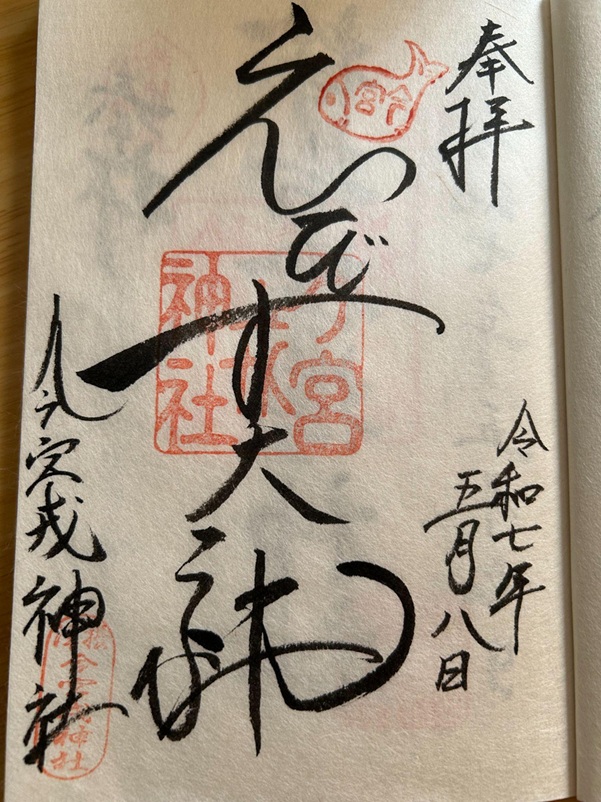 奉拝
令和七年
五月八日
今宮
えびす大神
今宮
戎
神社
今宮戎神社
今宮戎神社